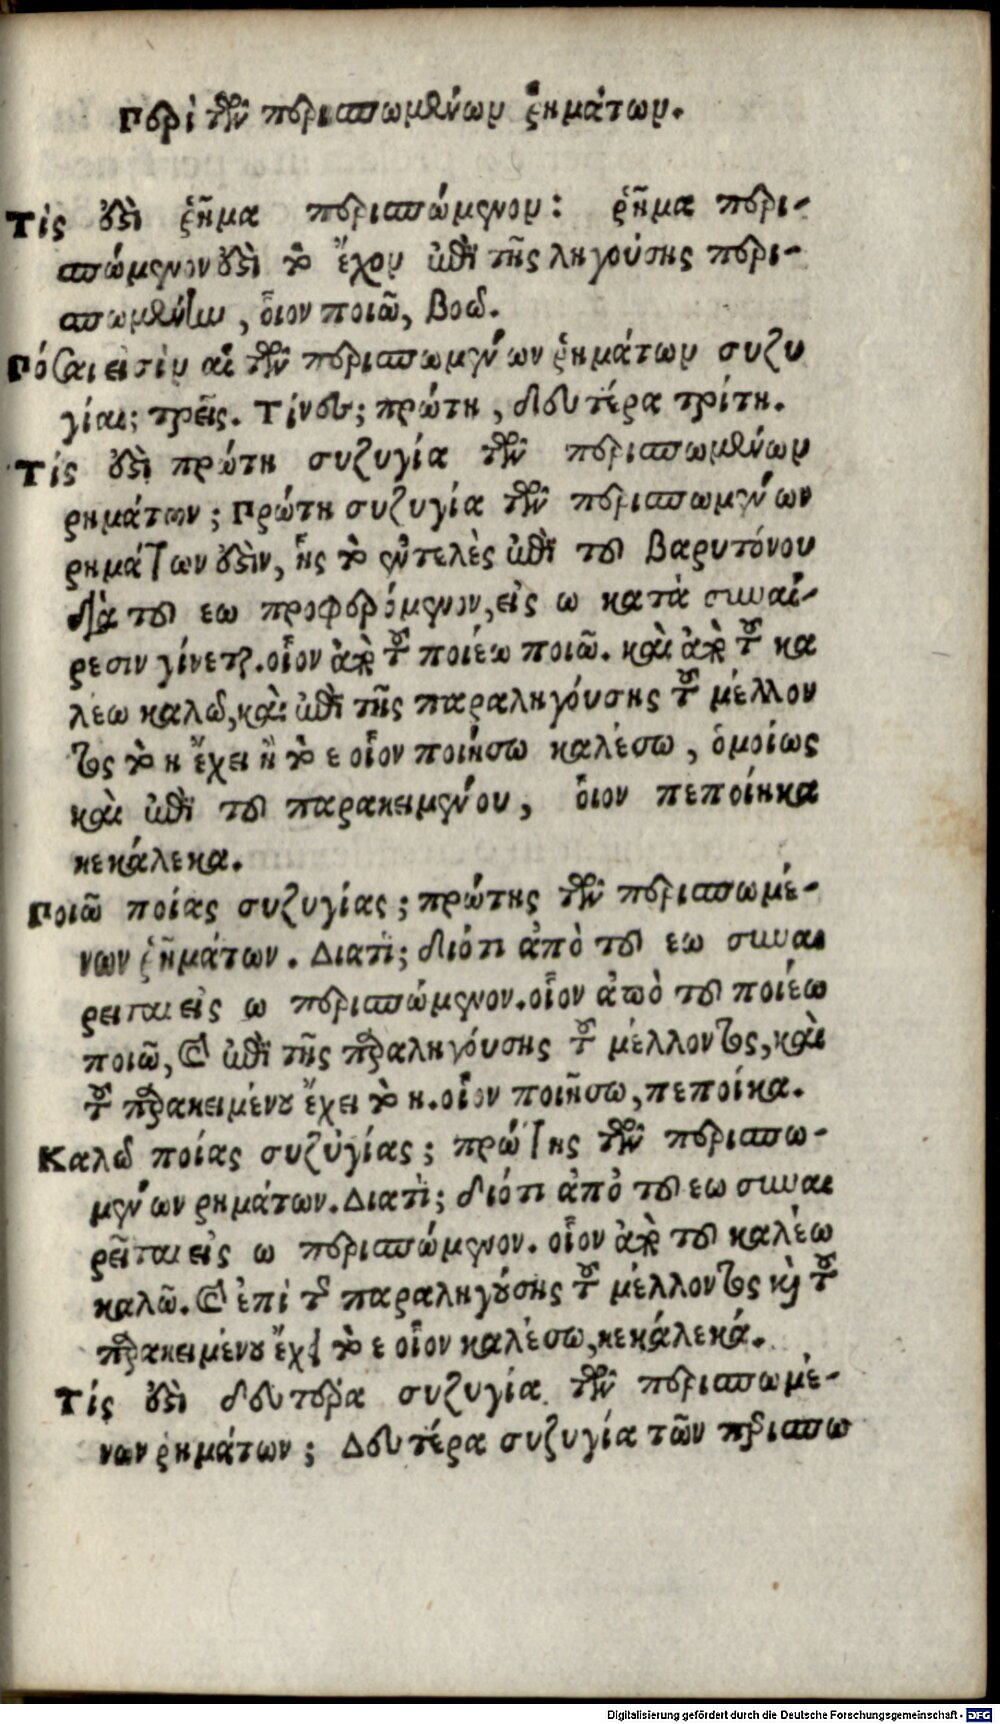 Περὶ τῶν περισπωμένων ῥημάτων.
Τίς ἐστὶ ῥῆμα περισπώμενον: ῥῆμα περι-
σπώμενον ἐστὶ τὸ ἔχον ἐπὶ τῆς ληγούσης περι-
σπωμένην, οἷον ποιῶ, βοῶ.
Πόσαι εἰσὶν αἱ τῶν περισπωμένων ῥημάτων συζυ
γίαι; τρεῖς. Τίνες; πρώτη, δευτέρα τρίτη.
Τίς ἐστὶ πρώτη συζυγία τῶν περισπωμένων
ρημάτων; Πρώτη συζυγία τῶν περισπωμένων
ρημάτων ἐστὶν, ἧς τὸ ἐντελὲς ἐπὶ τοῦ βαρυτόνου
διὰ τοῦ εω προφερόμενον, εἰς ω κατὰ συναί-
ρεσιν γίνεται. οἷον ἀπὸ τοῦ ποιέω ποιῶ. καὶ ἀπὸ τοῦ κα
λέω καλῶ, καὶ ἐπὶ τῆς παραληγούσης τοῦ μέλλον
τος τὸ η ἔχει ἢ τὸ ε οἷον ποιήσω καλέσω, ὁμοίως
καὶ ἐπὶ τοῦ παρακειμένου, οἷον πεποίηκα
κεκάλεκα.
Ποιῶ ποίας συζυγίας; πρώτης τῶν περισπωμέ-
νων ῥημάτων. Διατὶ; διότι ἀπὸ τοῦ εω συναι
ρειται εἰς ω περισπώμενον. οἷον ἀπὸ τοῦ ποιέω
ποιῶ, καὶ ἐπὶ τῆς παραληγούσης τοῦ μέλλοντος, καὶ
τοῦ παρακειμένου ἔχει τὸ η. οἷον ποιῆσω, πεποίκα.
Καλῶ ποίας συζυγίας; πρώτης τῶν περισπω-
μένων ρημάτων. Διατὶ; διότι ἀπὸ τοῦ εω συναι
ρεῖται εἰς ω περισπώμενον. οἷον ἀπὸ τοῦ καλέω
καλῶ. καὶ ἐπὶ τῆς παραληγούσης τοῦ μέλλοντος καὶ τοῦ
παρακειμένου ἔχει τὸ ε οἷον καλέσω, κεκάλεκά.
Τίς ἐστὶ δευτέρα συζυγία τῶν περισπωμέ-
νων ρημάτων; Δευτέρα συζυγία τῶν περισπω
Digitalisierung gefördert durch die Deutsche Forschungsgemeinschaft - DFG